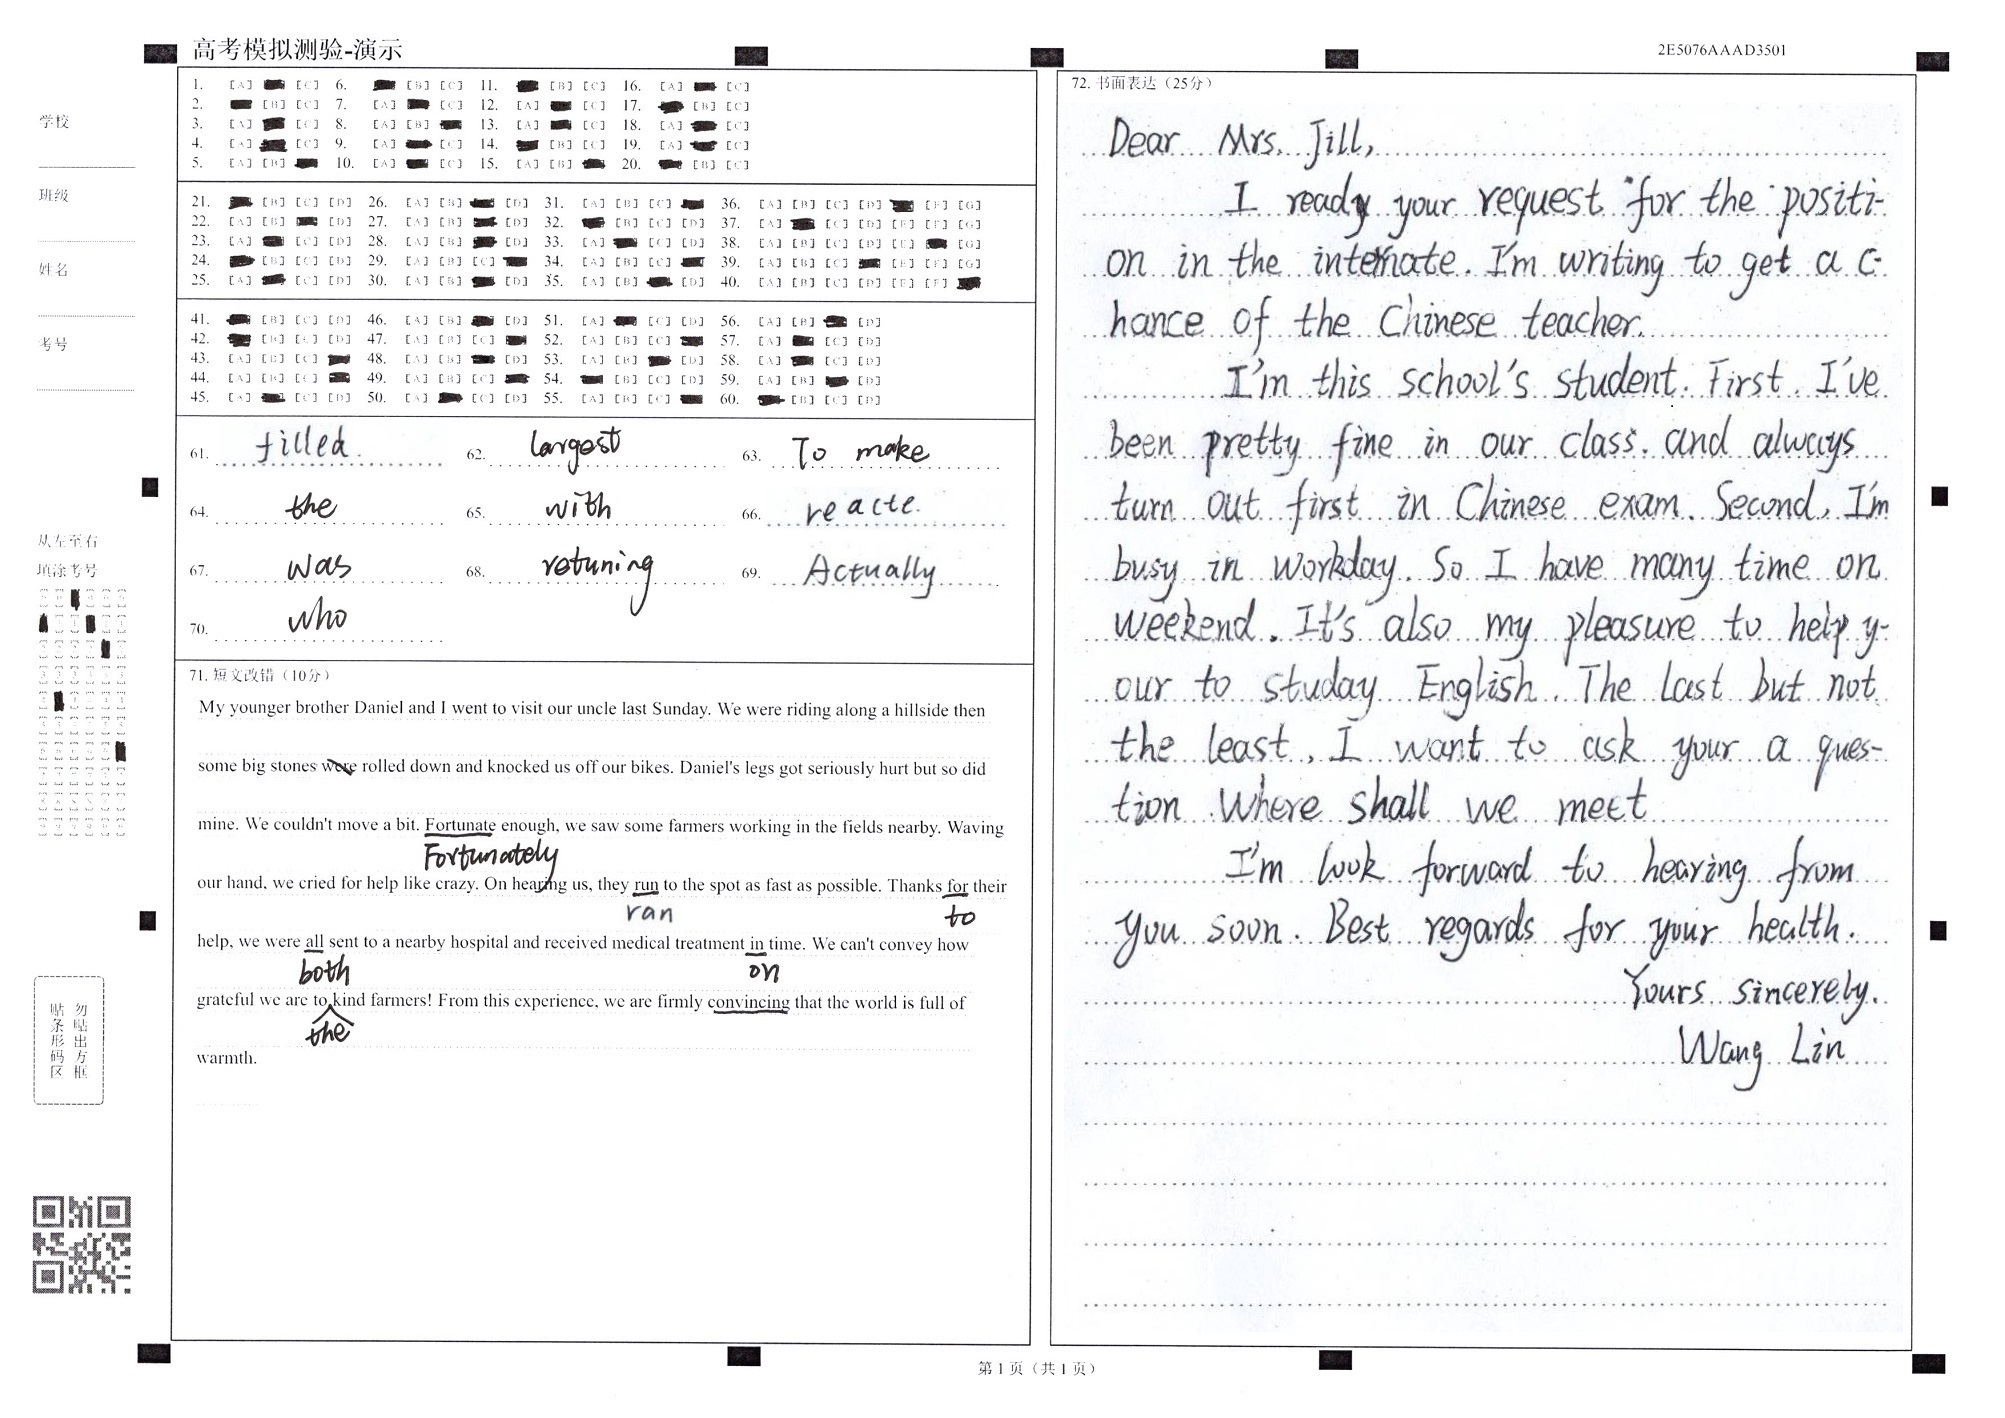 高考模拟测验-演示
2E5076AAAD3501
学校
班级
姓名
考号
从左至右
填涂考号
勿贴出方框
贴条形码区
1. [A] [C] 6. [B] [C] 11. [B] [C] 16. [A] [C]
2. [B] [C] 7. [A] [C] 12. [A] [C] 17. [B] [C]
3. [A] [C] 8. [A] [B] 13. [A] [C] 18. [A] [C]
4. [A] [C] 9. [A] [C] 14. [B] [C] 19. [A] [C]
5. [A] [B] 10. [A] [C] 15. [A] [B] 20. [B] [C]
21. [B] [C] [D] 26. [A] [B] [D] 31. [A] [B] [C] 36. [A] [B] [C] [D] [F] [G]
22. [A] [B] [D] 27. [A] [B] [D] 32. [B] [C] [D] 37. [A] [C] [D] [E] [F] [G]
23. [A] [C] [D] 28. [A] [B] [D] 33. [A] [C] [D] 38. [A] [B] [C] [D] [E] [G]
24. [B] [C] [D] 29. [A] [B] [C] 34. [A] [B] [C] 39. [A] [B] [C] [E] [F] [G]
25. [A] [C] [D] 30. [A] [B] [D] 35. [A] [B] [D] 40. [A] [B] [C] [D] [E] [F]
41. [B] [C] [D] 46. [A] [B] [D] 51. [A] [C] [D] 56. [A] [B] [D]
42. [B] [C] [D] 47. [A] [B] [C] 52. [A] [B] [C] 57. [A] [C] [D]
43. [A] [B] [C] 48. [A] [B] [D] 53. [A] [B] [D] 58. [A] [C] [D]
44. [A] [B] [C] 49. [A] [B] [C] 54. [B] [C] [D] 59. [A] [B] [D]
45. [A] [C] [D] 50. [A] [C] [D] 55. [A] [B] [C] 60. [B] [C] [D]
61. filled. 62. largest 63. To make
64. the 65. with 66. reacte.
67. was 68. retuning 69. Actually
70. who
71. 短文改错（10分）
My younger brother Daniel and I went to visit our uncle last Sunday. We were riding along a hillside then
some big stones were rolled down and knocked us off our bikes. Daniel's legs got seriously hurt but so did
mine. We couldn't move a bit. Fortunate enough, we saw some farmers working in the fields nearby. Waving
Fortunately
our hand, we cried for help like crazy. On hearing us, they run to the spot as fast as possible. Thanks for their
ran to
help, we were all sent to a nearby hospital and received medical treatment in time. We can't convey how
both on
grateful we are to kind farmers! From this experience, we are firmly convincing that the world is full of
the
warmth.
72. 书面表达（25分）
Dear Mrs. Jill,
I ready your request for the positi-
on in the internate. I'm writing to get a c-
hance of the Chinese teacher.
I'm this school's student. First. I've
been pretty fine in our class. and always
turn out first in Chinese exam. Second, I'm
busy in workday. So I have many time on
weekend. It's also my pleasure to help y-
our to studay English. The last but not
the least, I want to ask your a ques-
tion where shall we meet
I'm look forward to hearing from
you soon. Best regards for your health.
Yours sincerely.
Wang Lin
第 1 页（共 1 页）